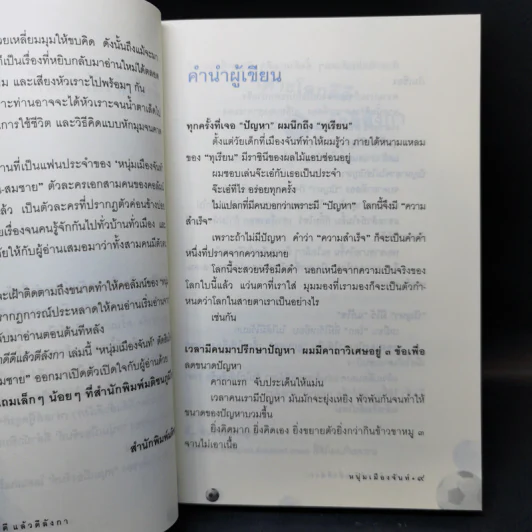 วยเหลี่ยมมุมให้ขบคิด ดังนั้นถึงแม้จะมา
ที่เป็นเรื่องที่หยิบกลับมาอ่านใหม่ได้ตลอด
ม และเสียงหัวเราะไปพร้อมๆ กัน
เราะท่านอาจจะได้หัวเราะจนน้ำตาเล็ด
การใช้ชีวิต และวิธีคิดแบบหักมุมจน
านที่เป็นแฟนประจำของ "หนุ่มเมืองจันท์"
-สมชาย" ตัวละครเอกสามคนของคอลัมน์
ล้ว เป็นตัวละครที่ปรากฏตัวค่อนข้าง
ยเรื่องจนคนรู้จักกันไปทั่วบ้านทั่วเมือง และ
ัยให้กับผู้อ่านเสมอมาว่าทั้งสามคนมีตัว
ะเฝ้าติดตามถึงขนาดทำให้คอลัมน์ของ "หนุ่ม
รากฏการณ์ประหลาดให้คนอ่านเริ่มอ่าน
ับมาอ่านตอนต้นทีหลัง
ดีดีแล้วดีลังกา เล่มนี้ "หนุ่มเมืองจันท์"
มชาย" ออกมาเปิดตัวเปิดใจกับผู้อ่านด้วย
ถมเล็กๆ น้อยๆ ที่สำนักพิมพ์มติชนภูมิใจ
สำนักพิมพ์มติชน
ดี แล้วตีลังกา
คำนำผู้เขียน
ทุกครั้งที่เจอ "ปัญหา" ผมนึกถึง "ทุเรียน"
ตั้งแต่วัยเด็กที่เมืองจันท์ทำให้ผมรู้ว่า ภายใต้หนามแหลม
ของ "ทุเรียน" มีราชินีของผลไม้แอบซ่อนอยู่
ผมชอบเล่นจ๊ะเอ๋กับเธอเป็นประจำ
จ๊ะเอ๋ทีไร อร่อยทุกครั้ง
ไม่แปลกที่มีคนบอกว่าเพราะมี "ปัญหา" โลกนี้จึงมี "ความ
สำเร็จ"
เพราะถ้าไม่มีปัญหา คำว่า "ความสำเร็จ" ก็จะเป็นคำคำ
หนึ่งที่ปราศจากความหมาย
โลกนี้จะสวยหรือมืดดำ นอกเหนือจากความเป็นจริงของ
โลกใบนี้แล้ว แว่นตาที่เราใส่ มุมมองที่เรามองก็จะเป็นตัวกำ-
หนดว่าโลกในสายตาเราเป็นอย่างไร
เช่นกัน
เวลามีคนมาปรึกษาปัญหา ผมมีคาถาวิเศษอยู่ ๓ ข้อเพื่อ
ลดขนาดปัญหา
คาถาแรก จับประเด็นให้แม่น
เวลาคนเรามีปัญหา มันมักจะยุ่งเหยิง พัวพันกันจนทำให้
ขนาดของปัญหาบวมขึ้น
ยิ่งคิดมาก ยิ่งคิดเอง ยิ่งขยายตัวยิ่งกว่ากินข้าวขาหมู ๓
จานไม่เอาเนื้อ
หนุ่มเมืองจันท์ • ๙